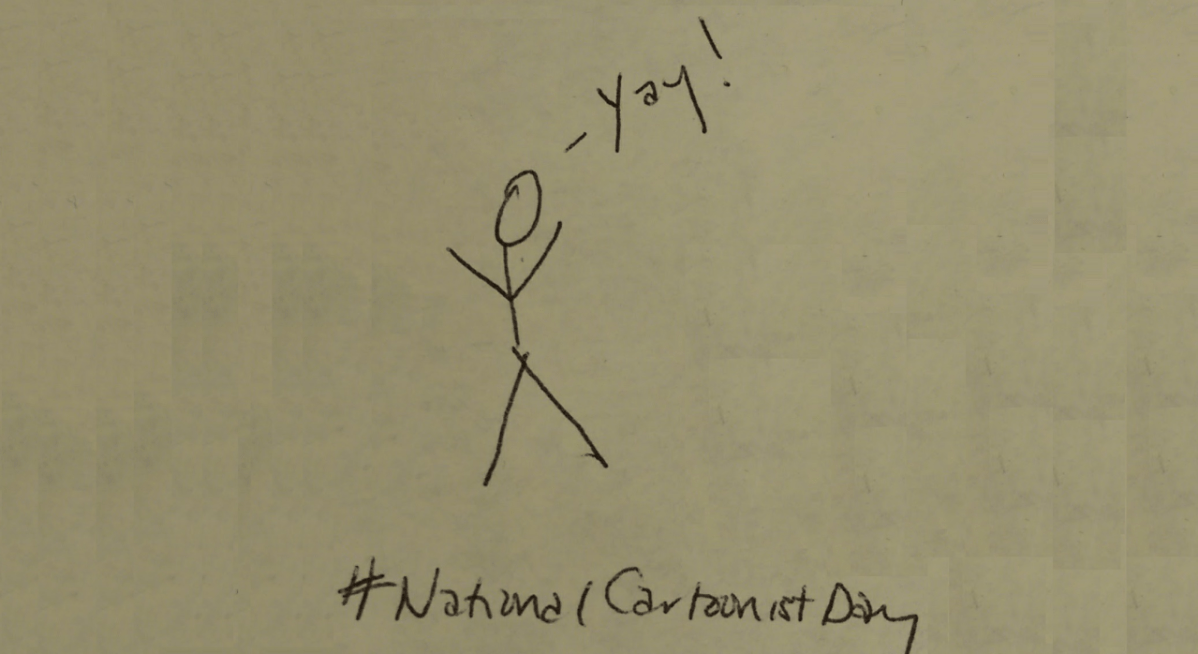 Yay!
#NationalCartoonistDay